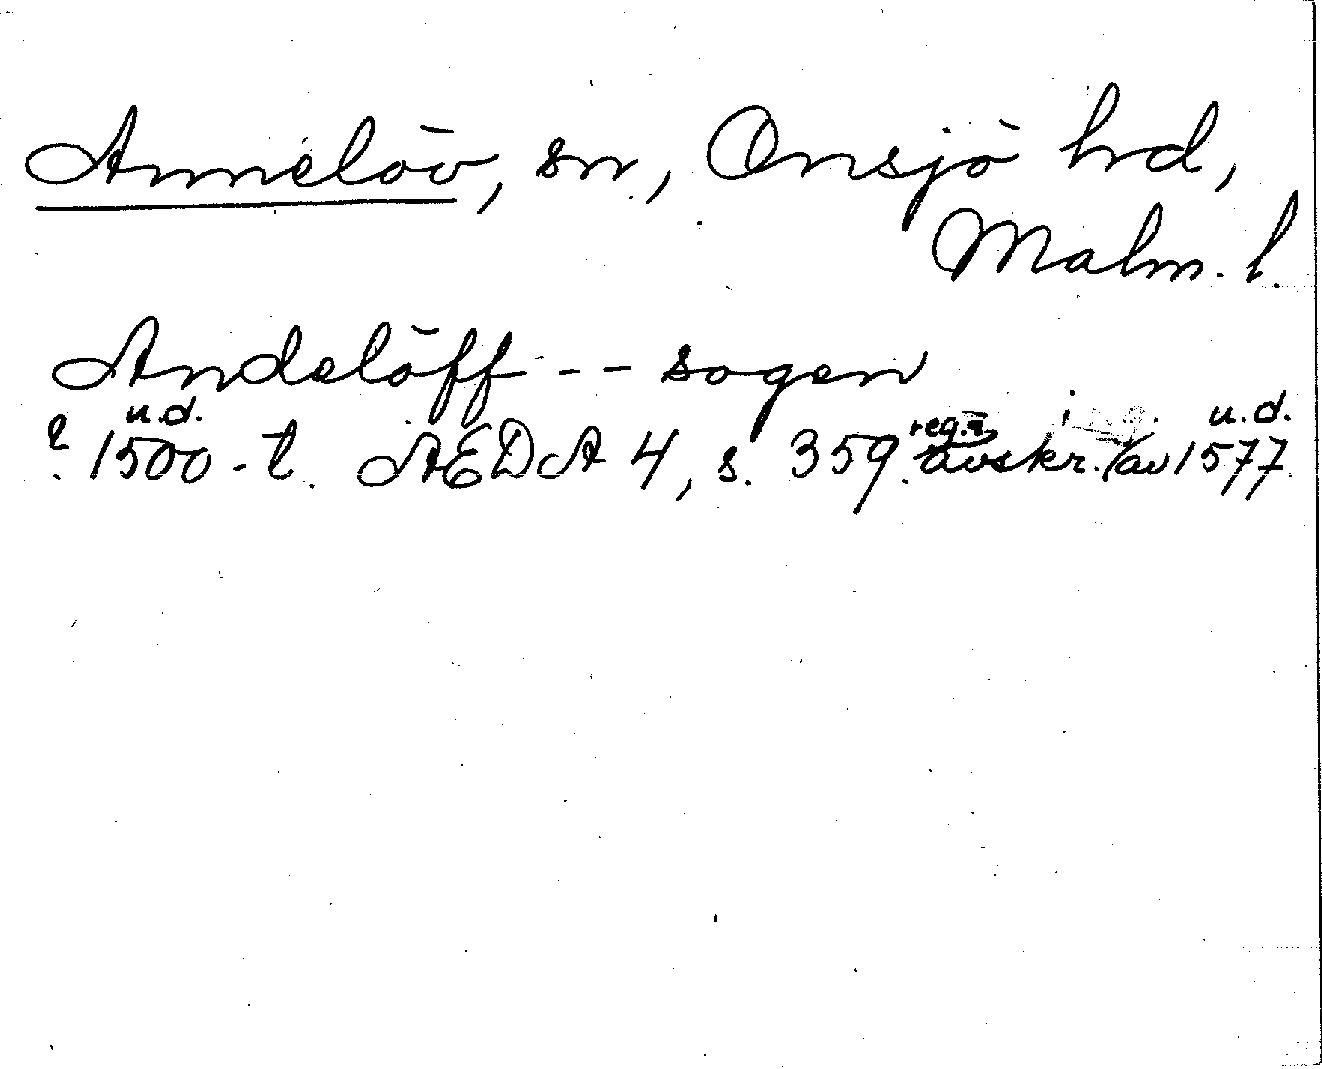 Annelöv, sn, Onsjö hd,
Malm. l.
Andelöff -- sogen
u.d. reg. i u.d.
? 1500-t. AEDA 4, s. 359. avskr. av 1577